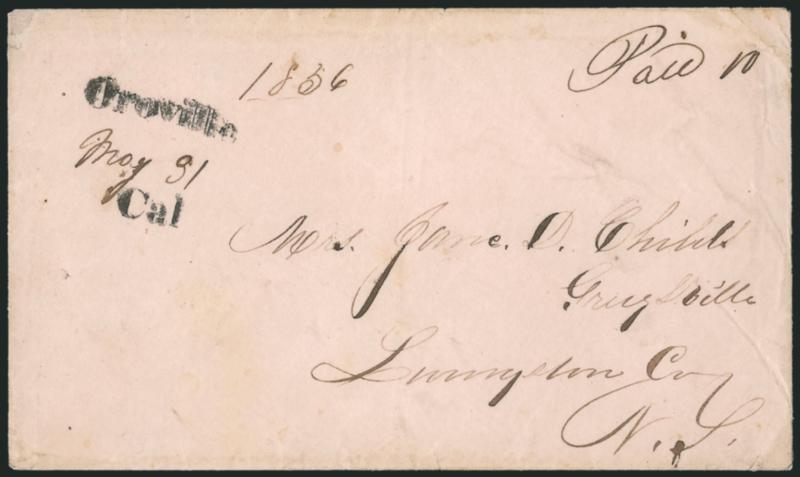 1856
Paid 10
Oroville
May 31
Cal
Mrs. Jane. D. Childs
Greigsville
Livingston Co,
N. Y.